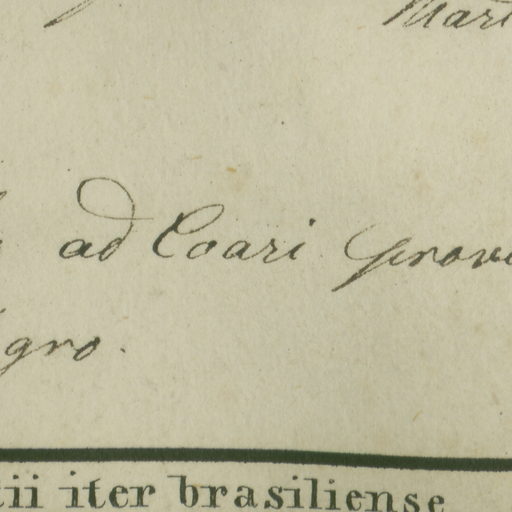 Mart
ad Coari prov
gro.
tii iter brasiliense